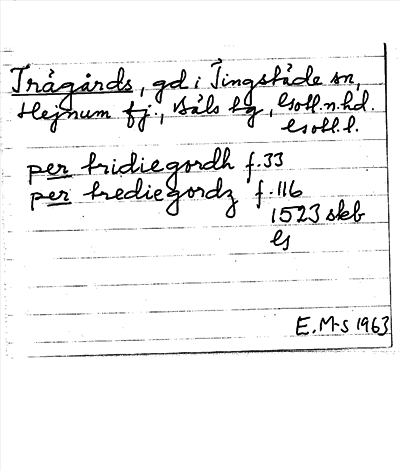 Trågårds, gd i Tingstäde sn,
Hejnum fj., Bäls tg, Gotl.n.hd.
Gotl.l.
per tridiegordh f.33
per trediegordz f.116
1523 skb
G
E.M-s 1963